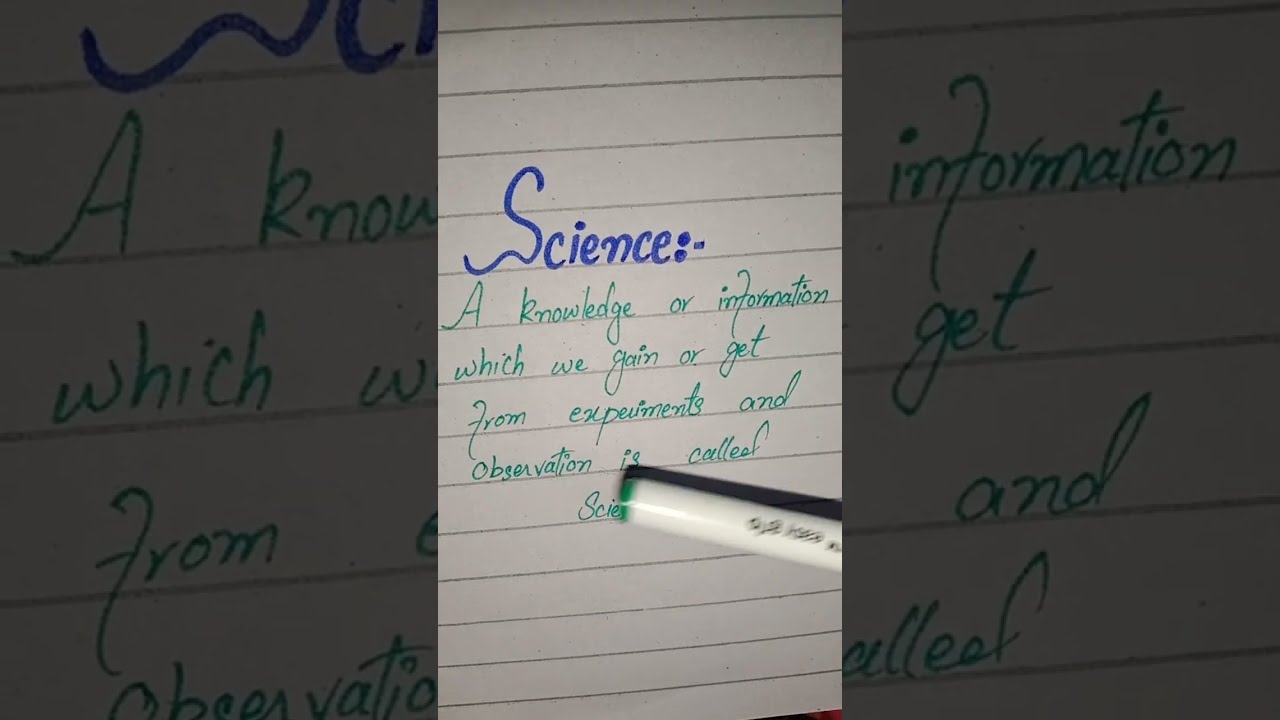 Science:-
A knowledge or information
which we gain or get
from experiments and
observation is called
Scie